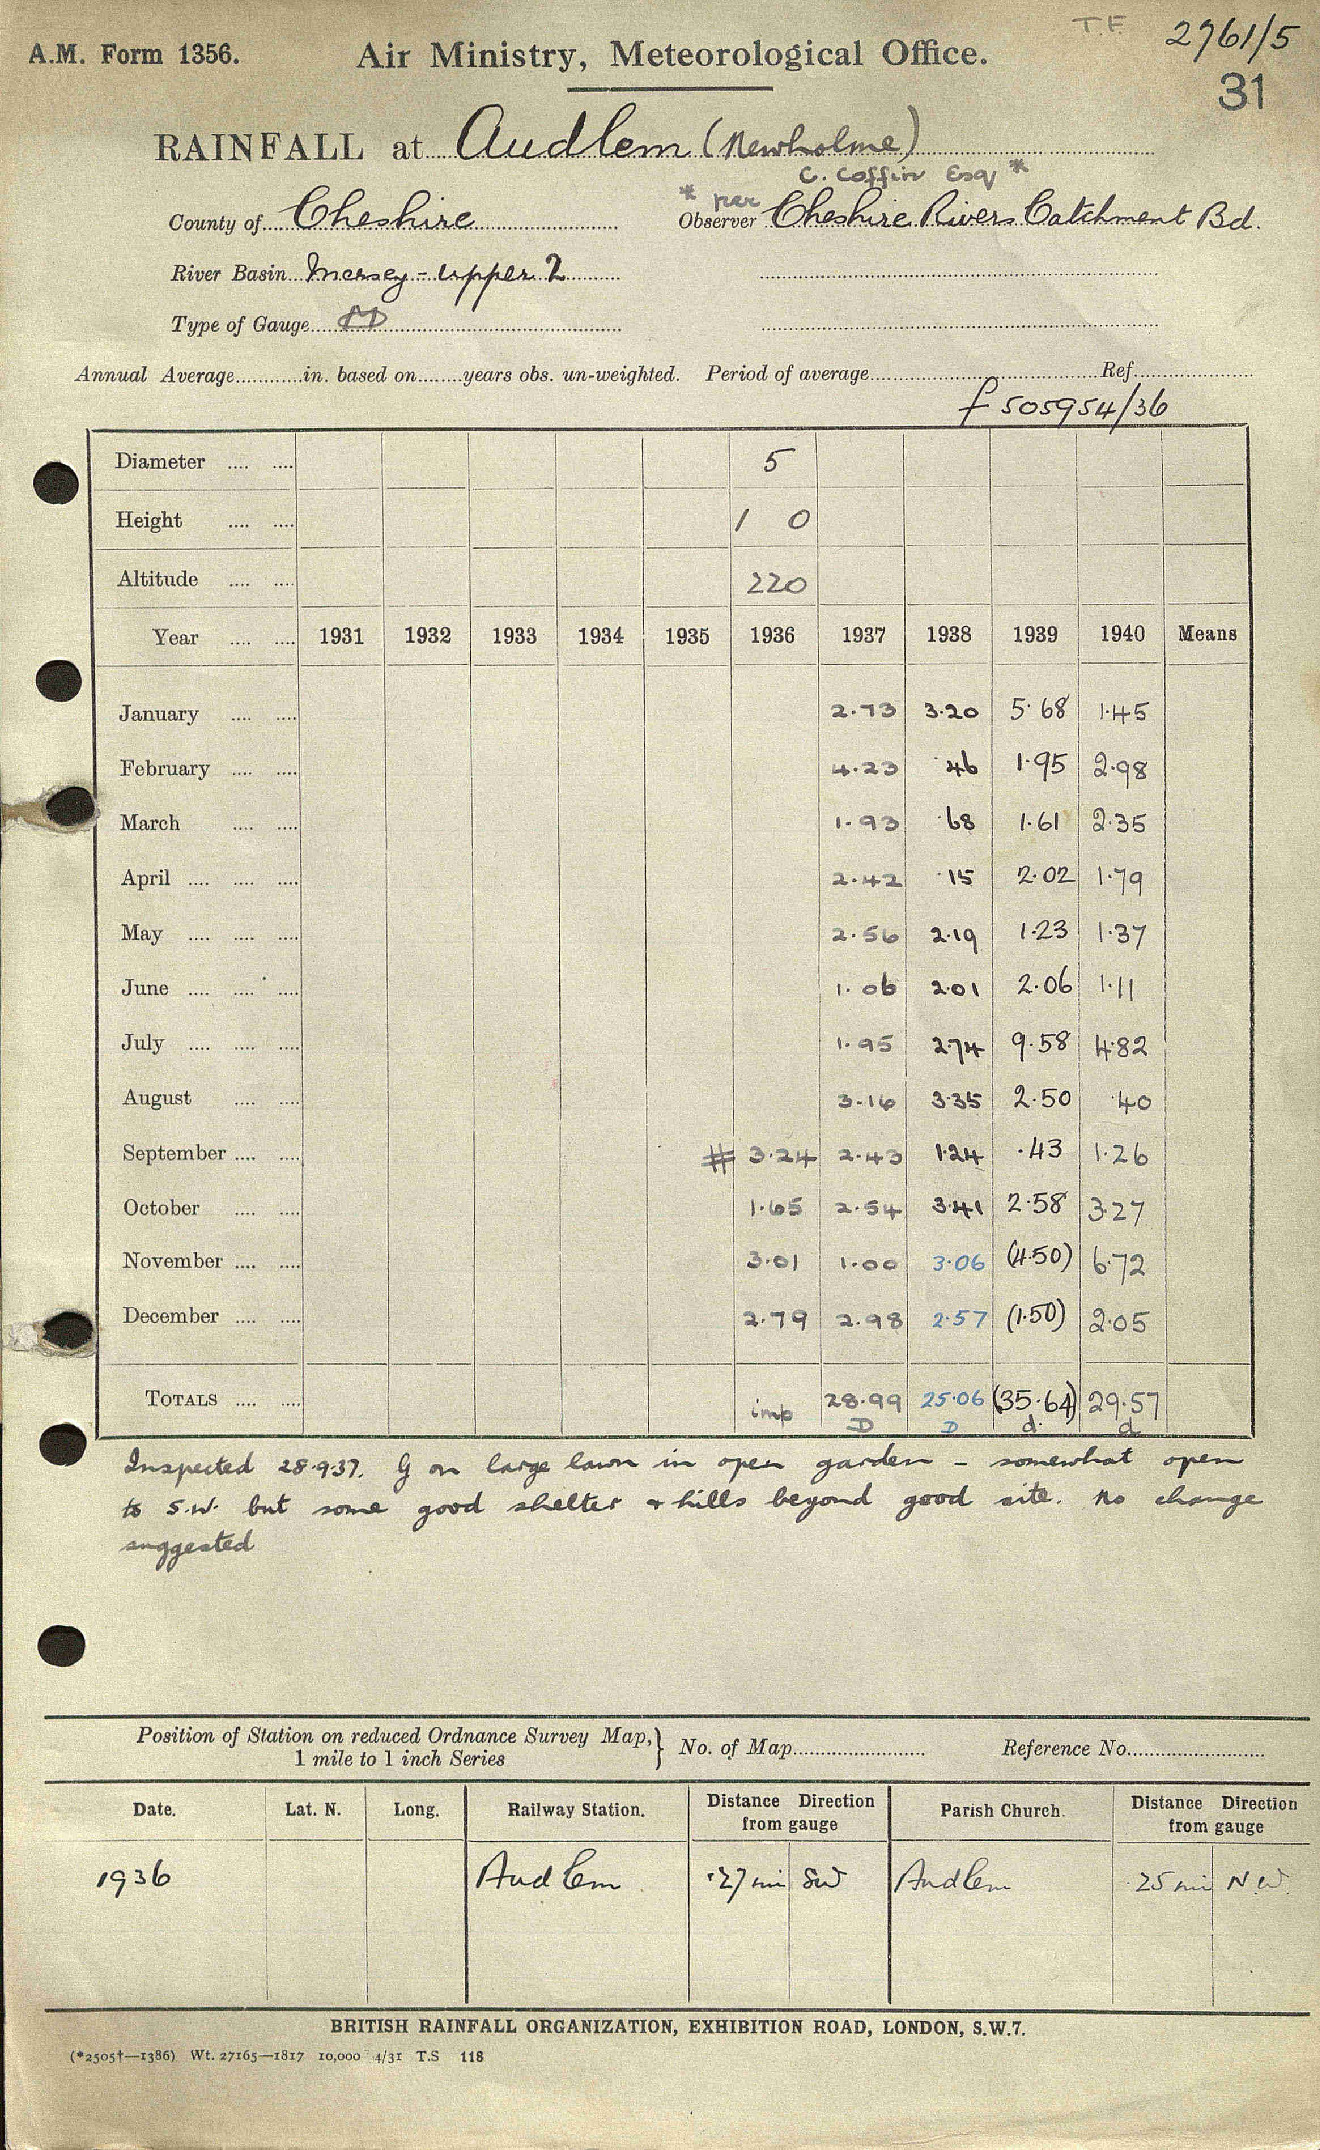 T.F. 2761/5
A.M. Form 1356. Air Ministry, Meteorological Office.
31
RAINFALL at Audlem (Newholme)
C. Coffin Esq *
* per
County of Cheshire Observer Cheshire Rivers Catchment Bd.
River Basin Mersey - upper 2
Type of Gauge M
Annual Average............in. based on........years obs. un-weighted. Period of average............ Ref............
f 505954/36
Diameter .... .... 5
Height .... .... 1 0
Altitude .... .... 220
Year .... .... 1931 1932 1933 1934 1935 1936 1937 1938 1939 1940 Means
January .... .... 2.73 3.20 5.68 1.45
February .... .... 4.23 .46 1.95 2.98
March .... .... 1.93 .68 1.61 2.35
April .... .... .... 2.42 .15 2.02 1.79
May .... .... .... 2.56 2.19 1.23 1.37
June .... .... .... 1.06 2.01 2.06 1.11
July .... .... .... 1.95 2.74 9.58 4.82
August .... .... 3.16 3.35 2.50 .40
September .... .... # 3.24 2.43 1.24 .43 1.26
October .... .... 1.65 2.54 3.41 2.58 3.27
November .... .... 3.01 1.00 3.06 (4.50) 6.72
December .... .... 2.79 2.98 2.57 (1.50) 2.05
TOTALS .... .... imp 28.99 25.06 (35.64) 29.57
D D d. d
Inspected 28.9.37. G on large lawn in open garden - somewhat open
to S.W. but some good shelter & hills beyond good site. No change
suggested
Position of Station on reduced Ordnance Survey Map, } No. of Map............ Reference No............
1 mile to 1 inch Series
Date. Lat. N. Long. Railway Station. Distance Direction Parish Church. Distance Direction
from gauge from gauge
1936 Audlem .27 mi SW Audlem .25 mi N.W.
BRITISH RAINFALL ORGANIZATION, EXHIBITION ROAD, LONDON, S.W.7.
(*2505†—1386) Wt. 27165—1817 10,000 4/31 T.S 118